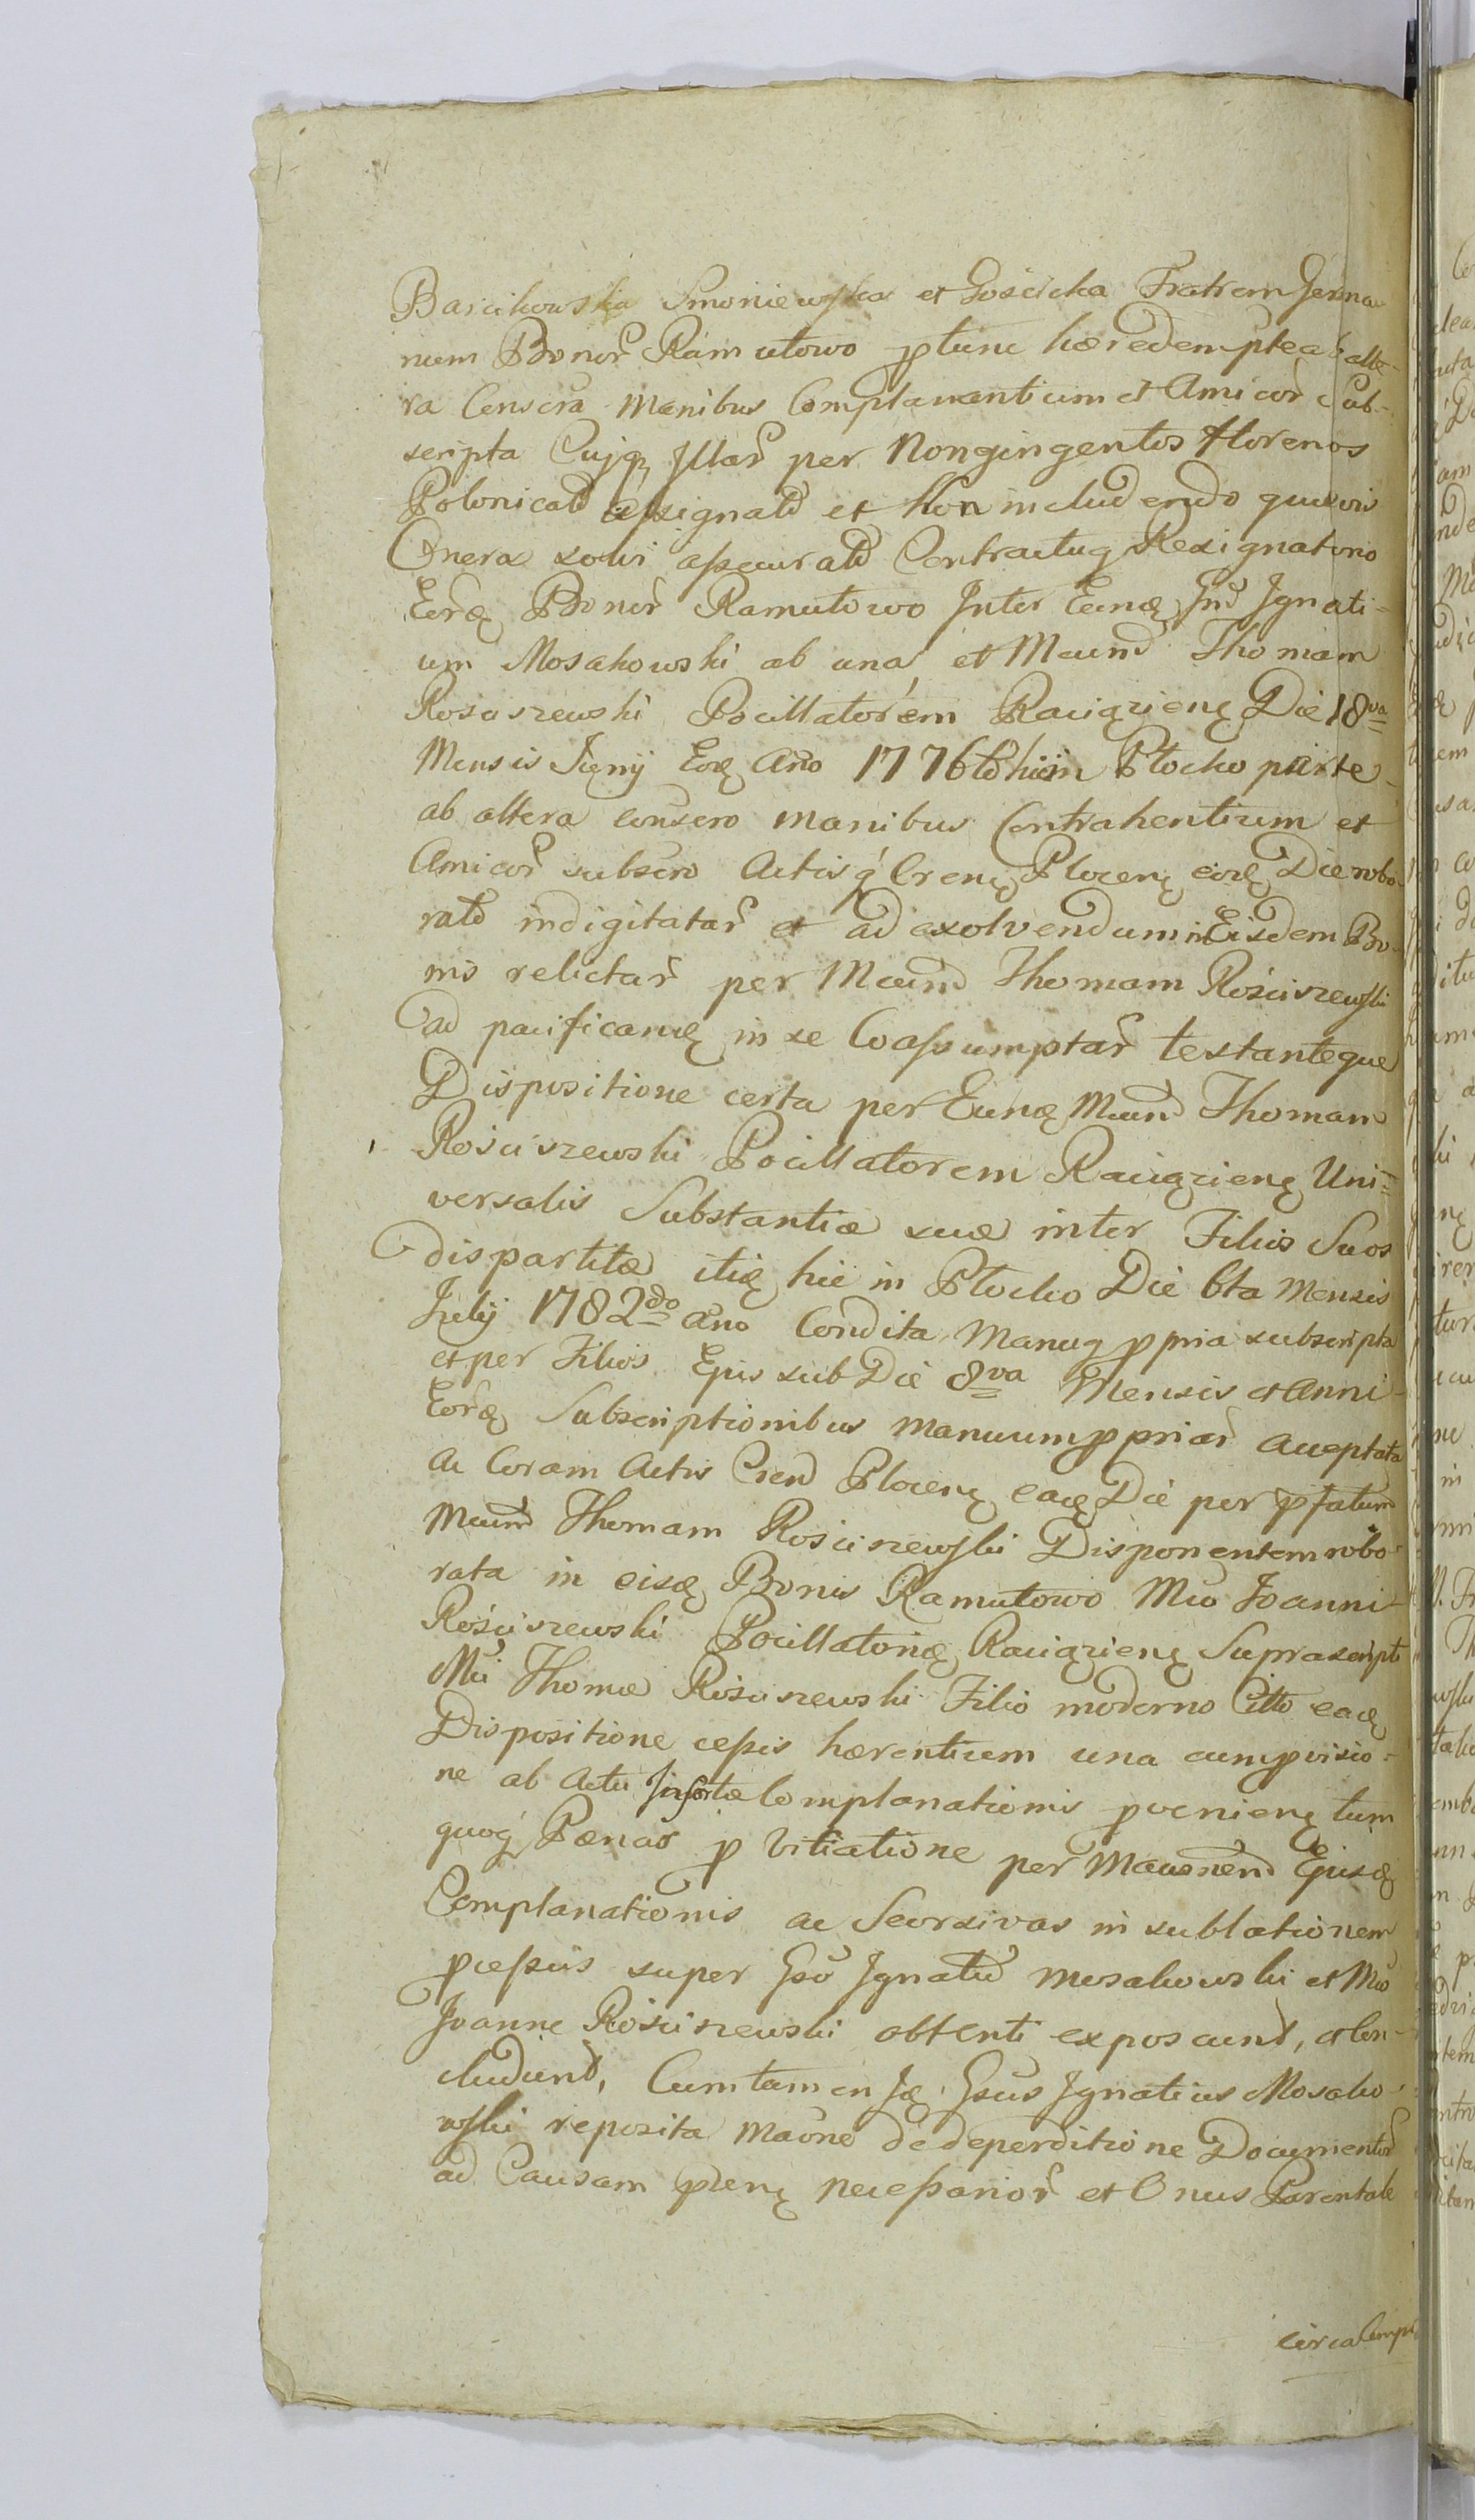 Barcikowska Smoniewska et Gościcka Fratrem Germa
num Bonor Ramutowo ptunc hæredem pte ab alte-
ra Conscra Manibus Complanantium et Amicor Sub-
scripta Cujq Illar per Nongingentos florenos
Polonicald assignald et Non includendo quævis
Onera solvi assecurald Contractuq Resignatorio
Eorę Bonor Ramutowo Inter Eunę Gnd Ignati-
um Mosakowski ab una, et Mcum Thomam
Rościszewski Pocillatorem Raciązienę Die 18va
Mensis Juny Eoę Ano 1776to hic in Płocko parte
ab altera consero manibus Contrahentium et
Amicor subscro Actisq Crenę Plocenę eoę Die robo-
rald indigitatar et ad exolvendum in Eisdem Bo-
nis relictar per Mcum Thomam Rościszewski
ad pacificanę in se Coassumptar testanteque
Dispositione certa per Eunę Mcum Thomam
Rościszewski Pocillatorem Raciązienę Uni=
versalis Substantiæ suæ inter Filios Suos
dispartitæ itię hic in Płocko Die 6ta Mensis
July 1782do Ano Condita, Manuq ppria subscripta
et per Filios Ejus sub Die 8va Mensis et Anni
Eorę Subscriptionibus manuum ppriar acceptata
ac Coram Actis Crend Plocenę eaę Die per pfatum
Mcum Thomam Rościszewski Disponentem robo-
rata in eisę Bonis Ramutowo Mco Joanni
Rościszewski Pocillatorię Raciązienę Suprascripti
Mci Thomæ Rościszewski Filio moderno Citto eaę
Dispositione cessis hærentium una cum pvisio-
ne ab Actu Insertæ Complanationis pvenienę tum
quoq Pænas p Vitiatione per Mauonend Ejusę
Complanationis ac Seorsivas in sublationem
pcessus super Gso Ignatio Mosakowski et Mco
Joanne Rościszewski obtenti exposcund, et Con-
cludund, Cum tamen Ię Gsus Ignatius Mosako-
wski reposita Maone de deperditione Documentor
ad Causam ptenę necessarior et Onus Parentale
circa